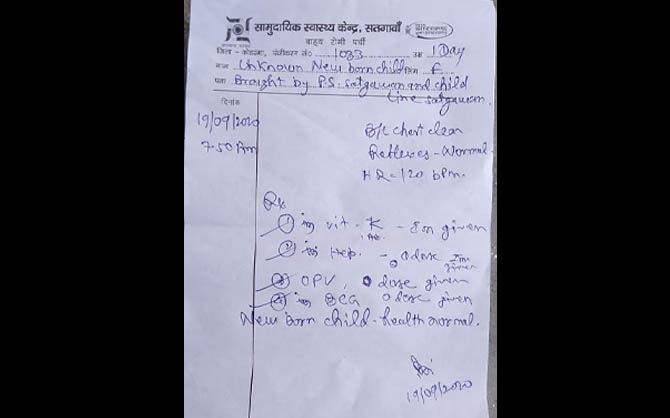 सामुदायिक स्वास्थ्य केन्द्र, सतगावाँ
बाह्य रोगी पर्ची
जिला - कोडरमा, पंजीकरण सं० 1033 उम्र 1 Day
नाम Unknown New born child लिंग F
पता Brought by P.S. Satgawan and child
line satgawan.
दिनांक
19/09/2020
7.50 Pm
B/L chest clear
Reflexes - Normal
HR = 120 bpm.
Rx
1 in vit - K - Im given
2 in Hep. - 0 dose Im given
3 OPV, 0 dose given
4 in BCG 0 dose given
New born child - health normal.
19/09/2020